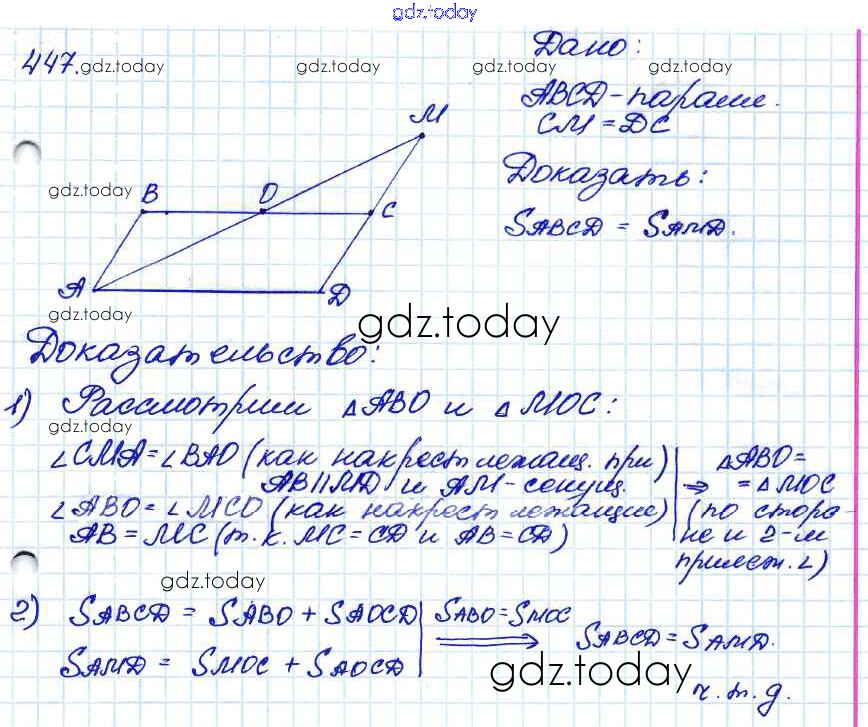 gdz.today
447. gdz.today gdz.today gdz.today gdz.today
Дано:
ABCD - паралл.
CM = DC
Доказать:
SABCD = SAMD.
M
gdz.today
B O C
A D
gdz.today
gdz.today
Доказательство:
1) Рассмотрим △ABO и △MOC:
gdz.today
∠CMA = ∠BAO (как накрест лежащ. при
AB || MD и AM - секущ.)
∠ABO = ∠MCO (как накрест лежащие)
AB = MC (т.к. MC = CD и AB = CD)
⇒ △ABO =
= △MOC
(по сторо-
не и 2-м
прилеж. ∠)
gdz.today
2) SABCD = SABO + SAOCD
SAMD = SMOC + SAOCD
SABO = SMOC
⟹ SABCD = SAMD.
gdz.today
ч.т.д.